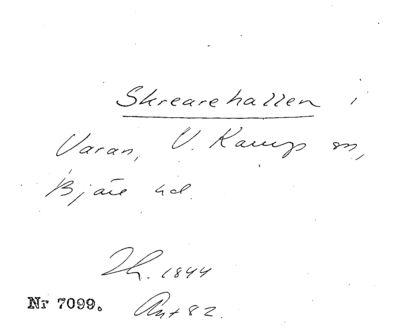 Skrearehallen i
Varan, V. Karup sn,
Bjäre hd.
Th. 1844
Nr 7099. Ant 82.